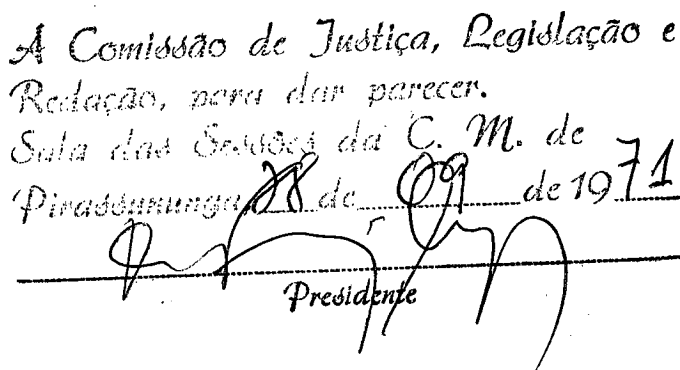 A Comissão de Justiça, Legislação e
Redação, para dar parecer.
Sala das Sessões da C. M. de
Pirassununga, 28 de 09 de 1971
Presidente